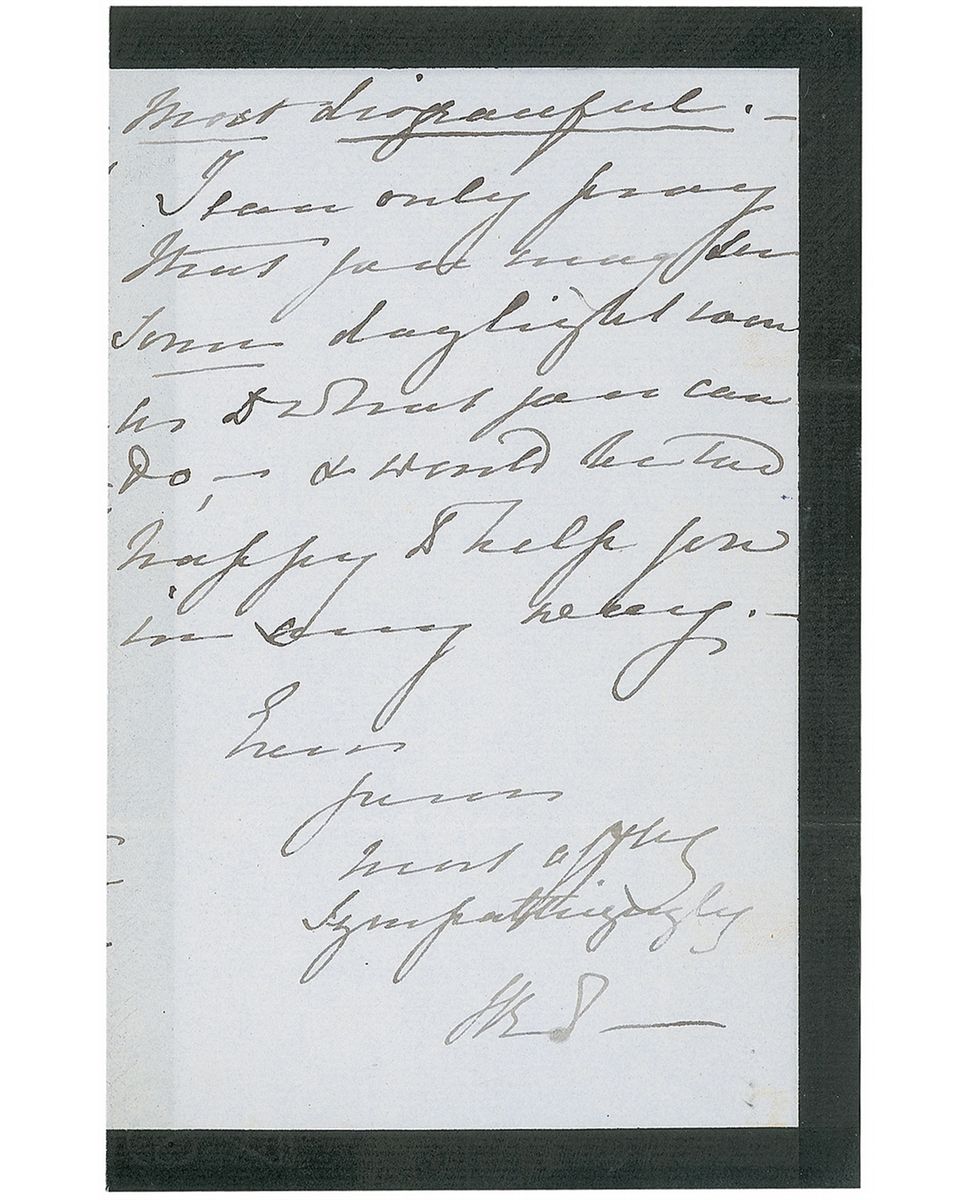 Most disgraceful. —
I can only pray
that you may see
some daylight soon
as to what you can
do, — & would be too
happy to help you
in any way. —
Ever
yours
most affly
Sympathizingly